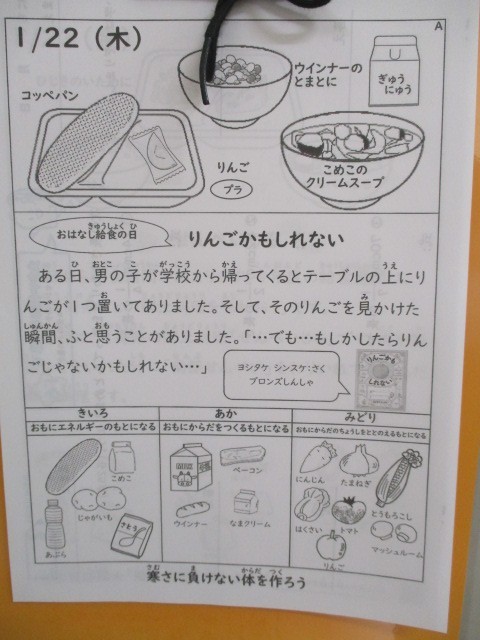 1/22(木)
A
コッペパン
ウインナーの
とまとに
ぎゅう
にゅう
りんご
プラ
こめこの
クリームスープ
おはなし給食の日
きゅうしょく ひ
りんごかもしれない
ある日、男の子が学校から帰ってくるとテーブルの上にり
ひ おとこ こ がっこう かえ うえ
んごが1つ置いてありました。そして、そのりんごを見かけた
お み
瞬間、ふと思うことがありました。「…でも…もしかしたらりん
しゅんかん おも
ごじゃないかもしれない…」
ヨシタケ シンスケ:さく
ブロンズしんしゃ
りんごかも
しれない
きいろ
おもにエネルギーのもとになる
こめこ
じゃがいも
あぶら
さとう
あか
おもにからだをつくるもとになる
ベーコン
ウインナー
なまクリーム
みどり
おもにからだのちょうしをととのえるもとになる
にんじん
たまねぎ
とうもろこし
はくさい
トマト
マッシュルーム
りんご
寒さに負けない体を作ろう
さむ ま からだ つく